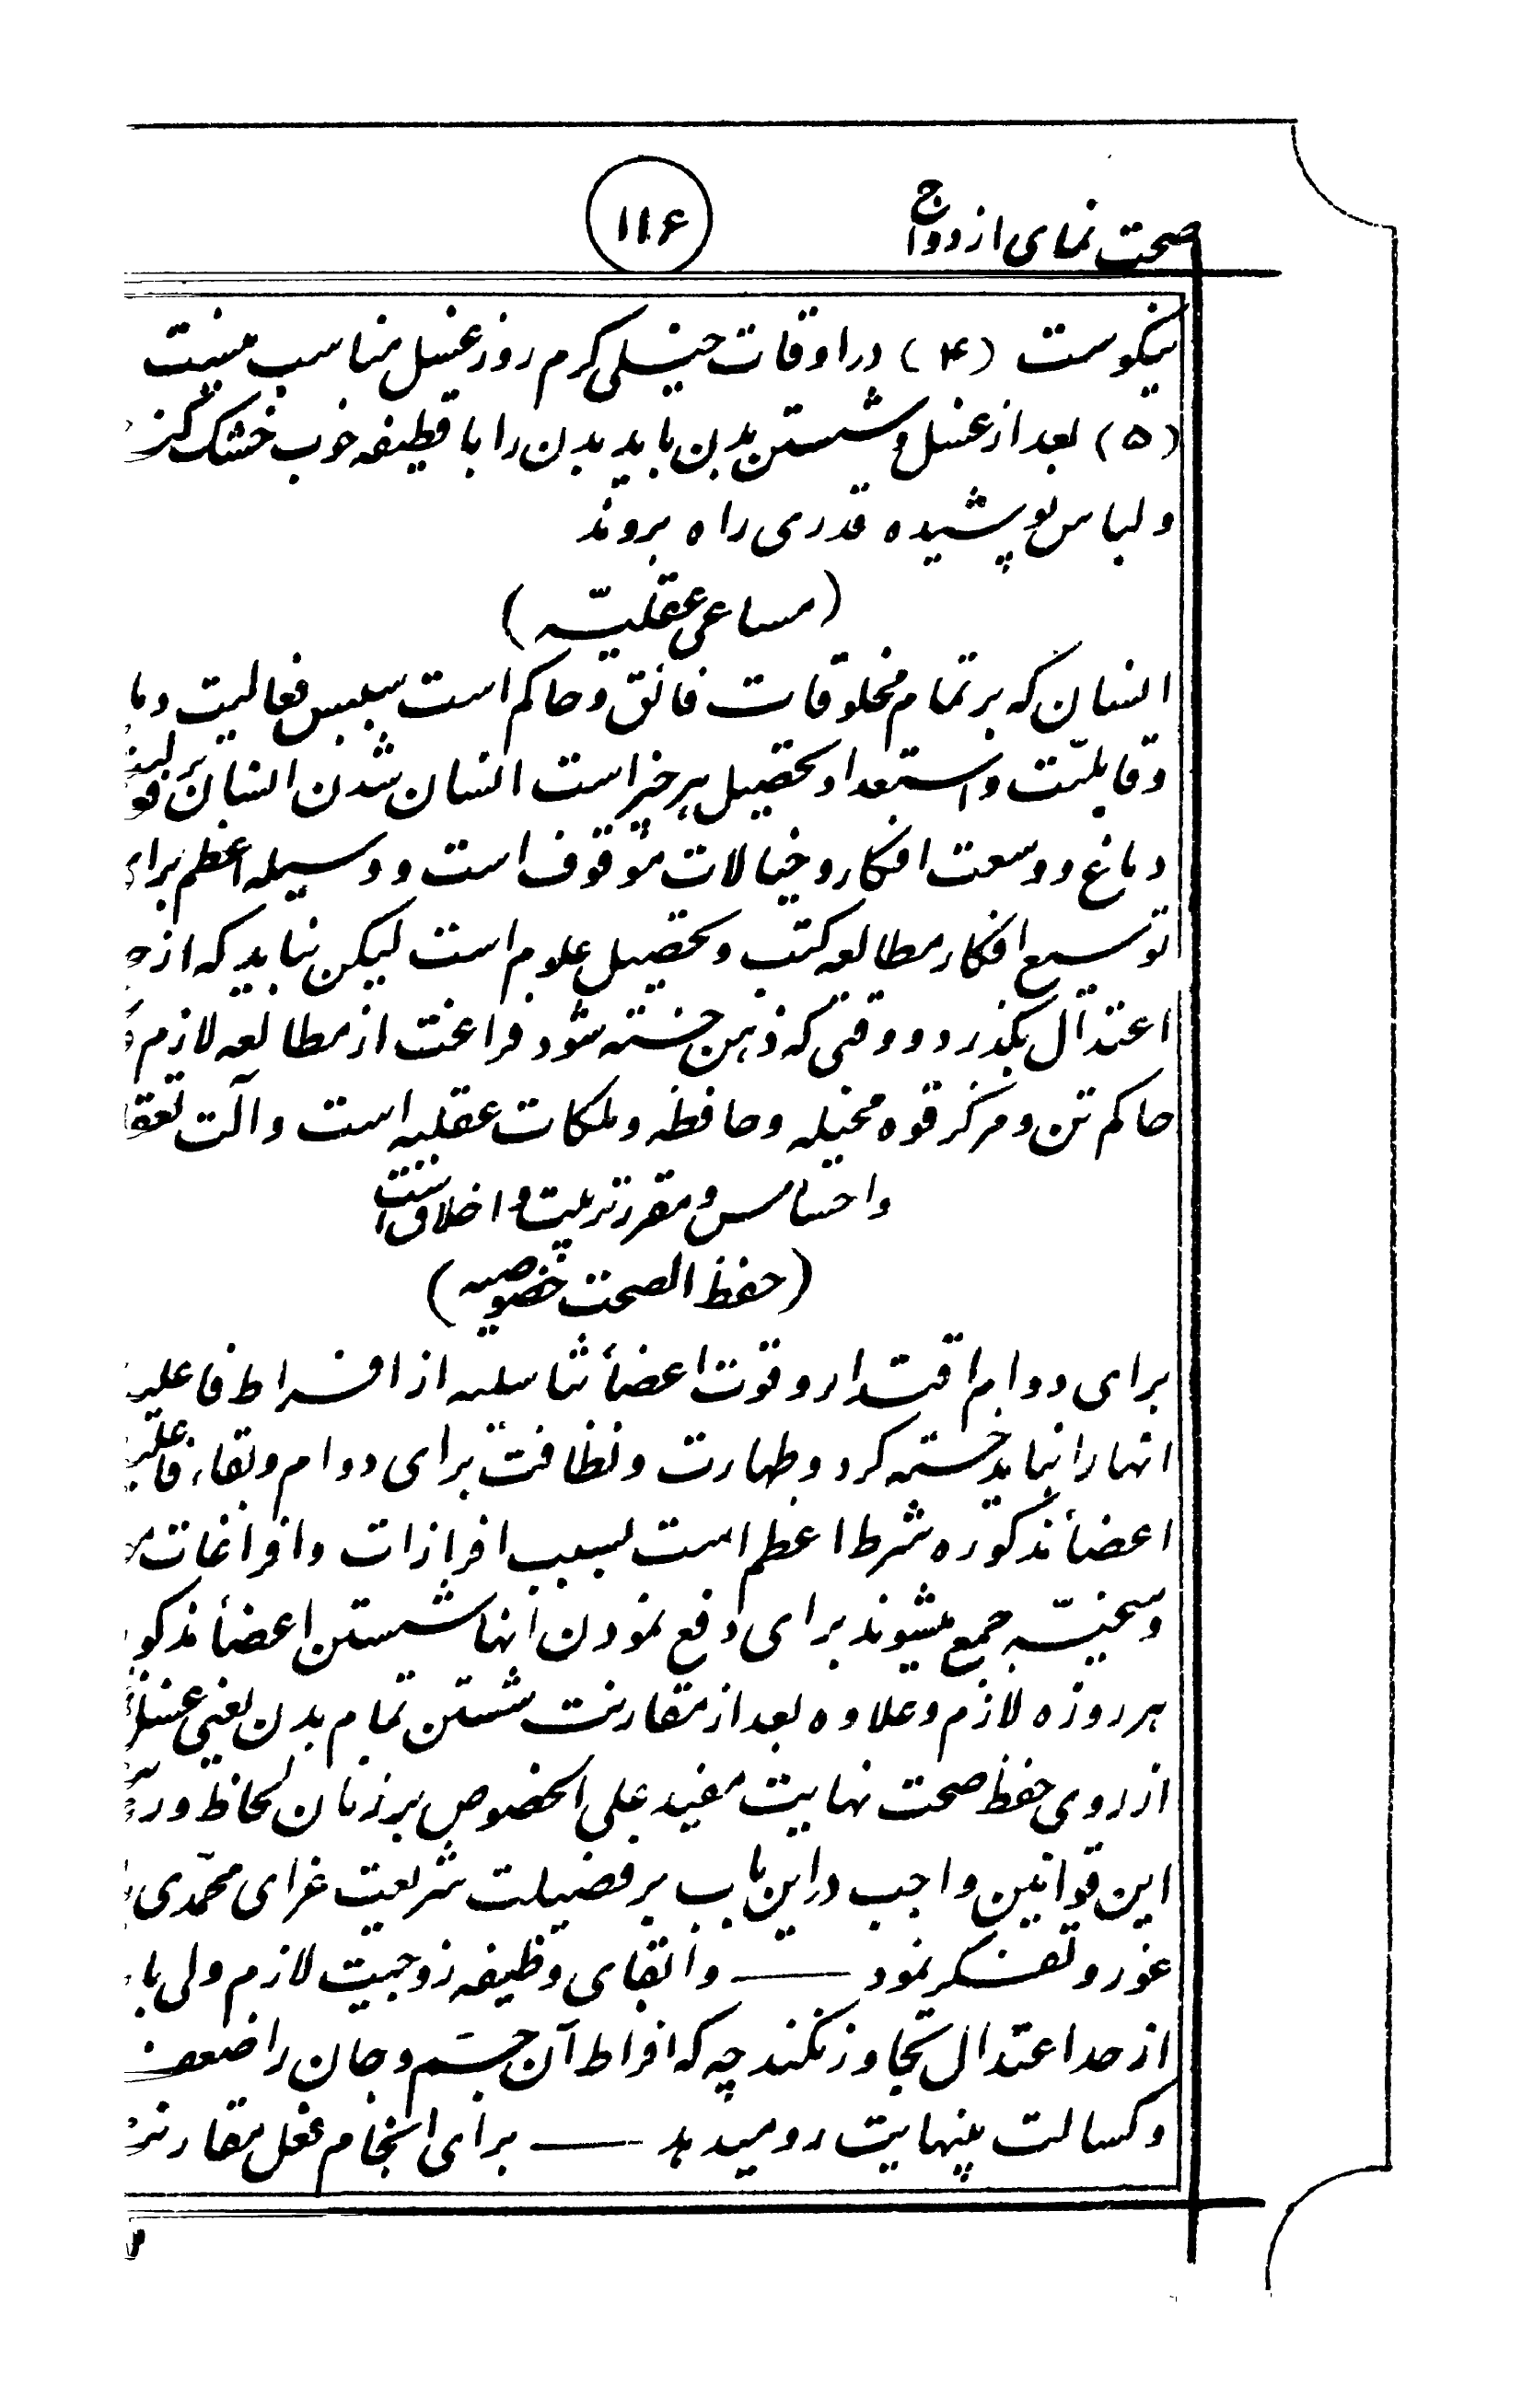 صحت نمای ازدواج
۱۱۶
نیکوست (۴) در اوقات خیلی کرم روز غسل مناسب نیست
(۵) بعد از غسل و شستن بدن باید بدن را با قطیفه خوب خشک
و لباس پوشیده قدری راه بروند
(مساعی عقلیّه)
انسان که بر تمام مخلوقات فائق و حاکم است بسبب فعالیت دما
و قابلیّت و استعداد تحصیل هر خیر است انسان شدن انسان
دماغ و وسعت افکار و خیالات موقوف است و وسیله اعظم برای
توسیع افکار مطالعه کتب و تحصیل علوم است لیکن نباید که از
اعتدال بکذرد و وقتی که ذهن خسته شود فراغت از مطالعه لازم
حاکم تن و مرکز قوه مخیله و حافظه و ملکات عقلیه است و آلت تعقل
و احساس و مقر تربیت و اخلاق است
(حفظ الصحت خصوصیه)
برای دوام اقتدار و قوت اعضأ تناسلیه از افراط فاعلیت
انها را نباید خسته کرد و طهارت و نظافت برای دوام و بقاء فاعلیت
اعضأ مذکوره شرط اعظم است بسبب افرازات و افراغات
جمع میشوند برای دفع نمودن انها شستن اعضأ مذکو
هر روزه لازم و علاوه بعد از مقارنت شستن تمام بدن یعنی غسل
از روی حفظ صحت نهایت مفید علی الخصوص بر زنان لحاظ و
این قوانین واجب در این باب بر فضیلت شریعت غرای محمّدی
غور و تفکر نمود — و ابقای وظیفه زوجیت لازم ولی با
از حد اعتدال تجاوز نکند چه که افراط آن جسم و جان را ضعف
و کسالت بینهایت رو میدهد — برای انجام فعل مقارنت